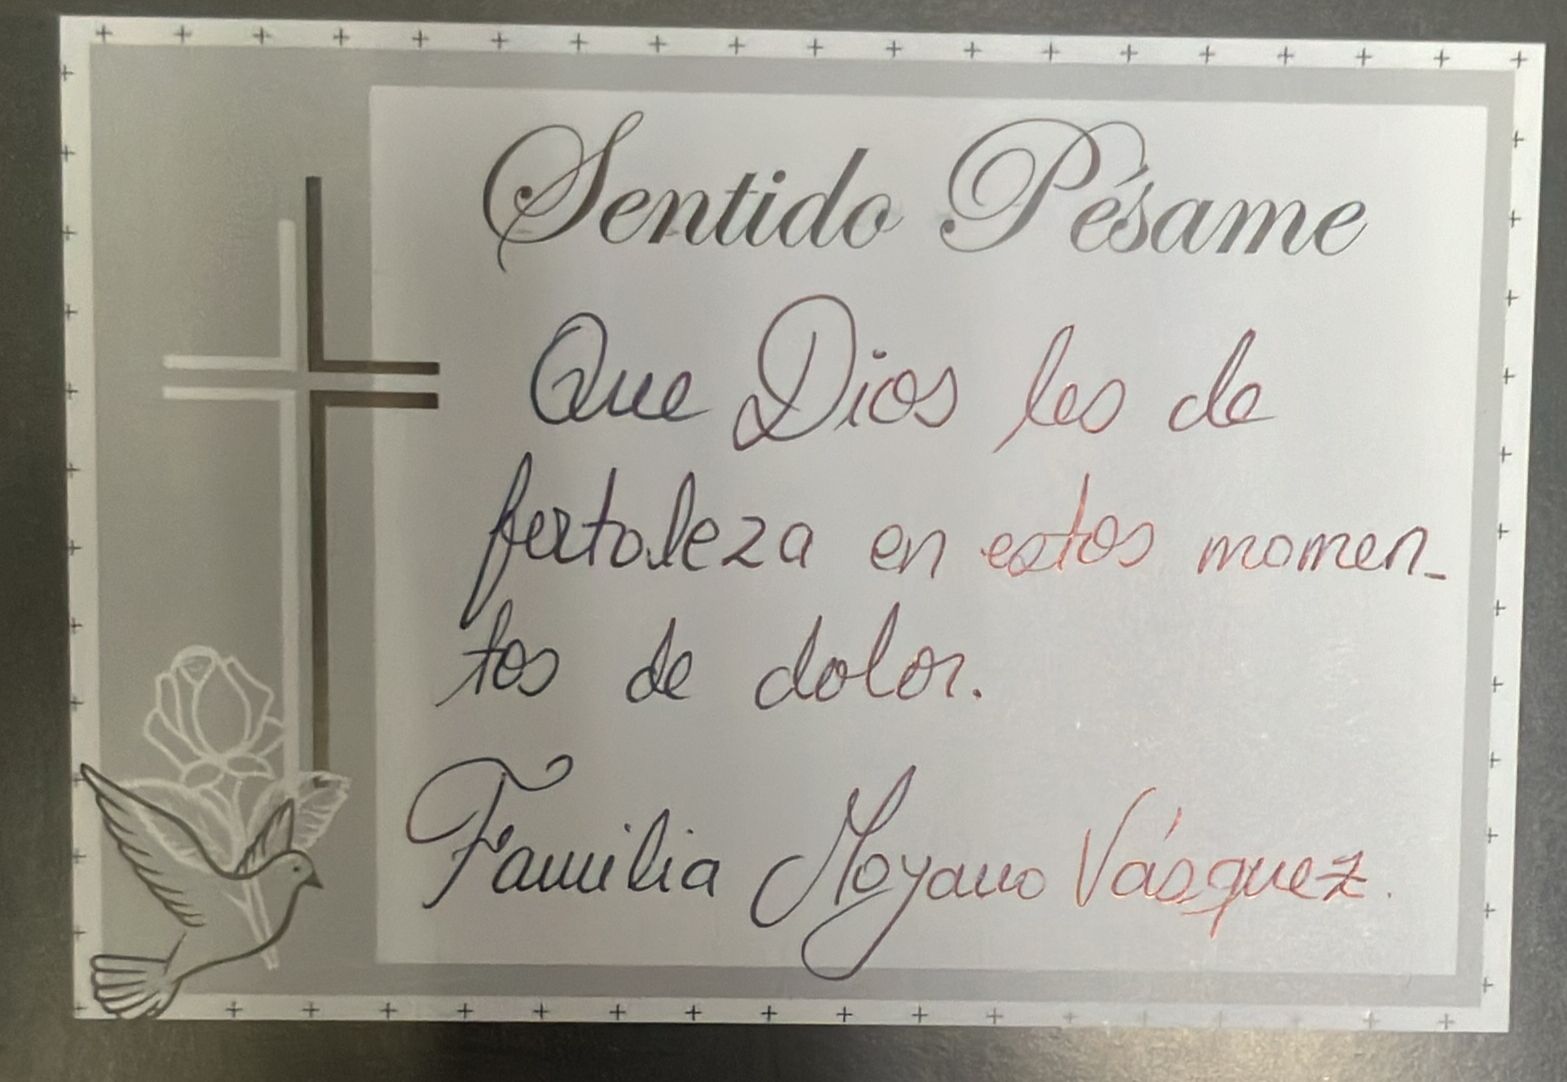 Sentido Pésame
Que Dios les de
fortaleza en estos momen-
tos de dolor.
Familia Moyano Vásquez.